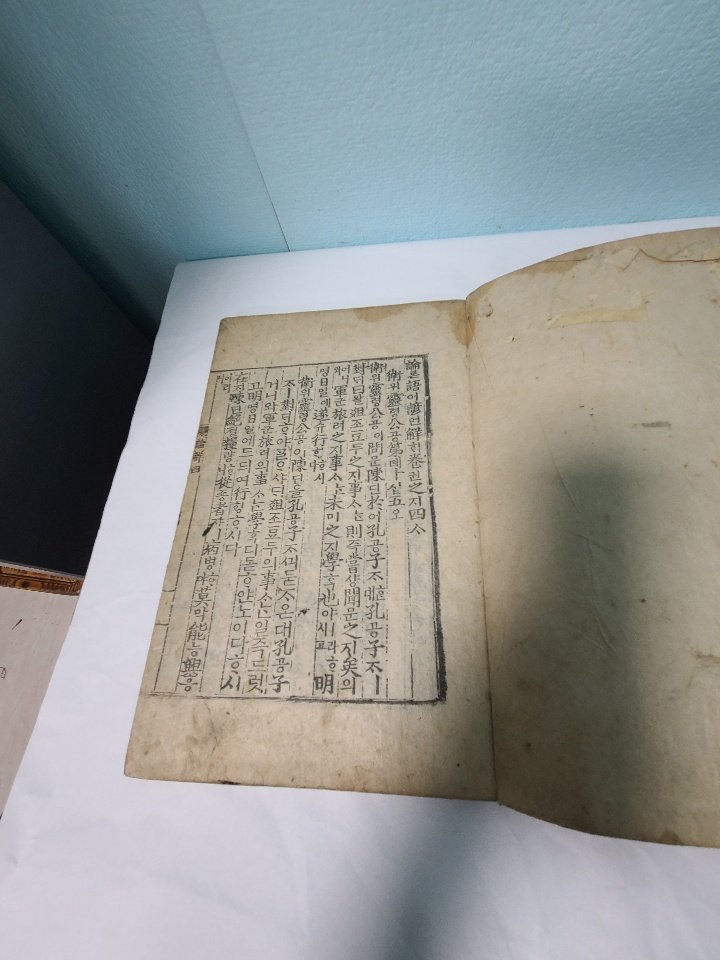 論론語어諺언解ᄒᆡ卷권之지四ᄉᆞ
衛위靈령公공第뎨十십五오
衛위靈령公공이問문陳딘於어孔공子ᄌᆞᄒᆞᆫ대孔공子ᄌᆞㅣ
對ᄃᆡ曰왈俎조豆두之지事ᄉᆞᄂᆞᆫ則즉嘗샹聞문之지矣의
어니와軍군旅려之지事ᄉᆞᄂᆞᆫ未미之지學ᄒᆞᆨ也야ㅣ라ᄒᆞ시고明
명日일에遂슈行ᄒᆡᆼᄒᆞ시다
衛위靈령公공이陳딘을孔공子ᄌᆞᄭᅴ묻ᄌᆞ온대孔공子
ᄌᆞㅣ對ᄃᆡᄒᆞ야ᄀᆞᆯᄋᆞ샤ᄃᆡ俎조豆두의事ᄉᆞᄂᆞᆫ일즉드럿
거니와軍군旅려의事ᄉᆞᄂᆞᆫ學ᄒᆞᆨ디몯ᄒᆞ얀노이다ᄒᆞ시
고明명日일에드듸여行ᄒᆡᆼᄒᆞ시다
在ᄌᆡ陳딘絶졀糧량ᄒᆞ니從죵者쟈ㅣ病병ᄒᆞ야莫막能능興흥
이러니